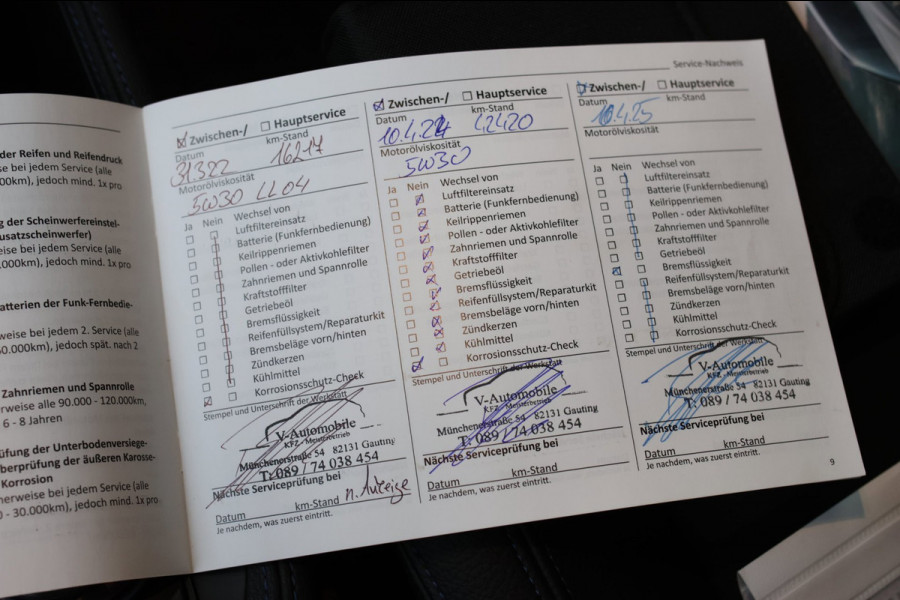 der Reifen und Reifendruck
se bei jedem Service (alle
000km), jedoch mind. 1x pro
ng der Scheinwerfereinstel-
usatzscheinwerfer)
weise bei jedem Service (alle
.000km), jedoch mind. 1x pro
atterien der Funk-Fernbedie-
weise bei jedem 2. Service (alle
60.000km), jedoch spät. nach 2
Zahnriemen und Spannrolle
erweise alle 90.000 - 120.000km,
6 - 8 Jahren
üfung der Unterbodenversiege-
berprüfung der äußeren Karosse-
Korrosion
nerweise bei jedem Service (alle
0 - 30.000km), jedoch mind. 1x pro
Service-Nachweis
Zwischen-/ Hauptservice
Datum km-Stand
31322 16217
Motorölviskosität
5W30 LL04
Ja Nein Wechsel von
Luftfiltereinsatz
Batterie (Funkfernbedienung)
Keilrippenriemen
Pollen - oder Aktivkohlefilter
Zahnriemen und Spannrolle
Kraftstofffilter
Getriebeöl
Bremsflüssigkeit
Reifenfüllsystem/Reparaturkit
Bremsbeläge vorn/hinten
Zündkerzen
Kühlmittel
Korrosionsschutz-Check
Stempel und Unterschrift der Werkstatt
V-Automobile
KFZ - Meisterbetrieb
Münchenerstraße 54 82131 Gauting
T: 089 / 74 038 454
Nächste Serviceprüfung bei
Datum km-Stand n. Anzeige
Je nachdem, was zuerst eintritt.
Zwischen-/ Hauptservice
Datum km-Stand
10.4.24 42420
Motorölviskosität
5W30
Ja Nein Wechsel von
Luftfiltereinsatz
Batterie (Funkfernbedienung)
Keilrippenriemen
Pollen - oder Aktivkohlefilter
Zahnriemen und Spannrolle
Kraftstofffilter
Getriebeöl
Bremsflüssigkeit
Reifenfüllsystem/Reparaturkit
Bremsbeläge vorn/hinten
Zündkerzen
Kühlmittel
Korrosionsschutz-Check
Stempel und Unterschrift der Werkstatt
V-Automobile
KFZ - Meisterbetrieb
Münchenerstraße 54 82131 Gauting
T: 089 / 74 038 454
Nächste Serviceprüfung bei
Datum km-Stand
Je nachdem, was zuerst eintritt.
Zwischen-/ Hauptservice
Datum km-Stand
10.4.25
Motorölviskosität
Ja Nein Wechsel von
Luftfiltereinsatz
Batterie (Funkfernbedienung)
Keilrippenriemen
Pollen - oder Aktivkohlefilter
Zahnriemen und Spannrolle
Kraftstofffilter
Getriebeöl
Bremsflüssigkeit
Reifenfüllsystem/Reparaturkit
Bremsbeläge vorn/hinten
Zündkerzen
Kühlmittel
Korrosionsschutz-Check
Stempel und Unterschrift der Werkstatt
V-Automobile
KFZ - Meisterbetrieb
Münchenerstraße 54 82131 Gauting
T: 089 / 74 038 454
Nächste Serviceprüfung bei
Datum km-Stand
Je nachdem, was zuerst eintritt.
9